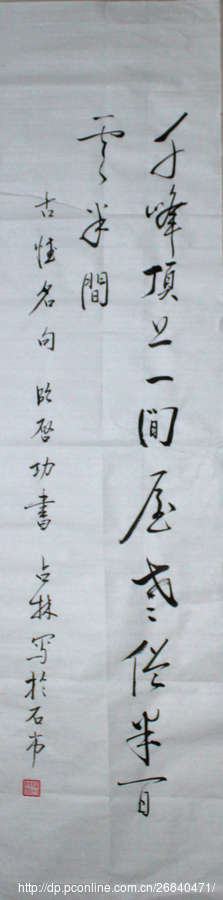 千峰頂上一间屋老僧半间
雲半間
古德名句 临启功書 占林写於石市
http://dp.pconline.com.cn/26840471/